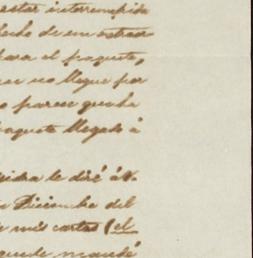 estar interrumpida
hecho de un extraor
para el paquete,
no llegue por
parece que ha
paquete llegado á
le diré á V.
Diciembre del
mis cartas (el
quede mandé